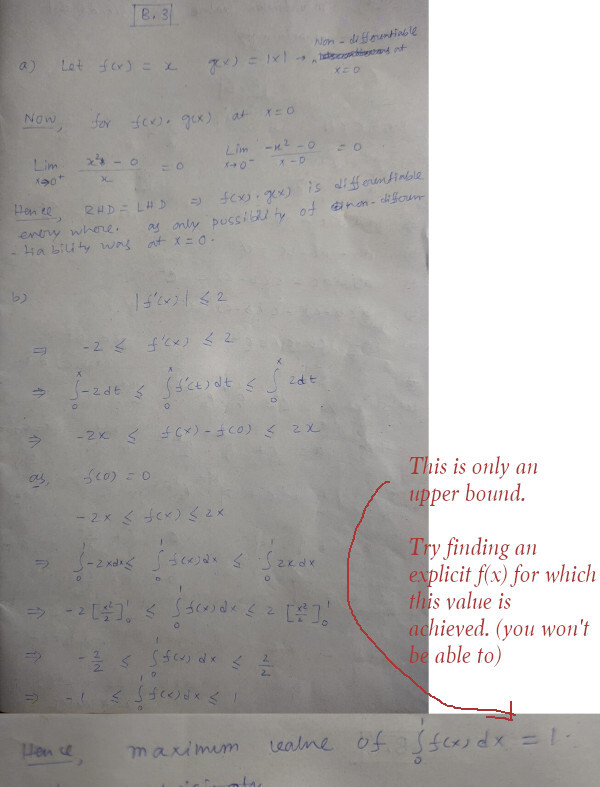 B.3
a) Let f(x) = x g(x) = |x| → Non-differentiable at x=0
Now, for f(x).g(x) at x=0
Lim x→0⁺ x² - 0 / x = 0 Lim x→0⁻ -x² - 0 / x - 0 = 0
Hence, RHD = LHD ⇒ f(x).g(x) is differentiable
every where. as only possiblity of non-differen
-tiability was at x=0.
b) |f'(x)| ≤ 2
⇒ -2 ≤ f'(x) ≤ 2
⇒ ∫₀ˣ -2dt ≤ ∫₀ˣ f'(t)dt ≤ ∫₀ˣ 2dt
⇒ -2x ≤ f(x) - f(0) ≤ 2x
as, f(0) = 0
-2x ≤ f(x) ≤ 2x
⇒ ∫₀¹ -2xdx ≤ ∫₀¹ f(x)dx ≤ ∫₀¹ 2xdx
⇒ -2[x²/2]₀¹ ≤ ∫₀¹ f(x)dx ≤ 2[x²/2]₀¹
⇒ -2/2 ≤ ∫₀¹ f(x)dx ≤ 2/2
⇒ -1 ≤ ∫₀¹ f(x)dx ≤ 1
Hence, maximum value of ∫₀¹ f(x)dx = 1.
This is only an
upper bound.
Try finding an
explicit f(x) for which
this value is
achieved. (you won't
be able to)